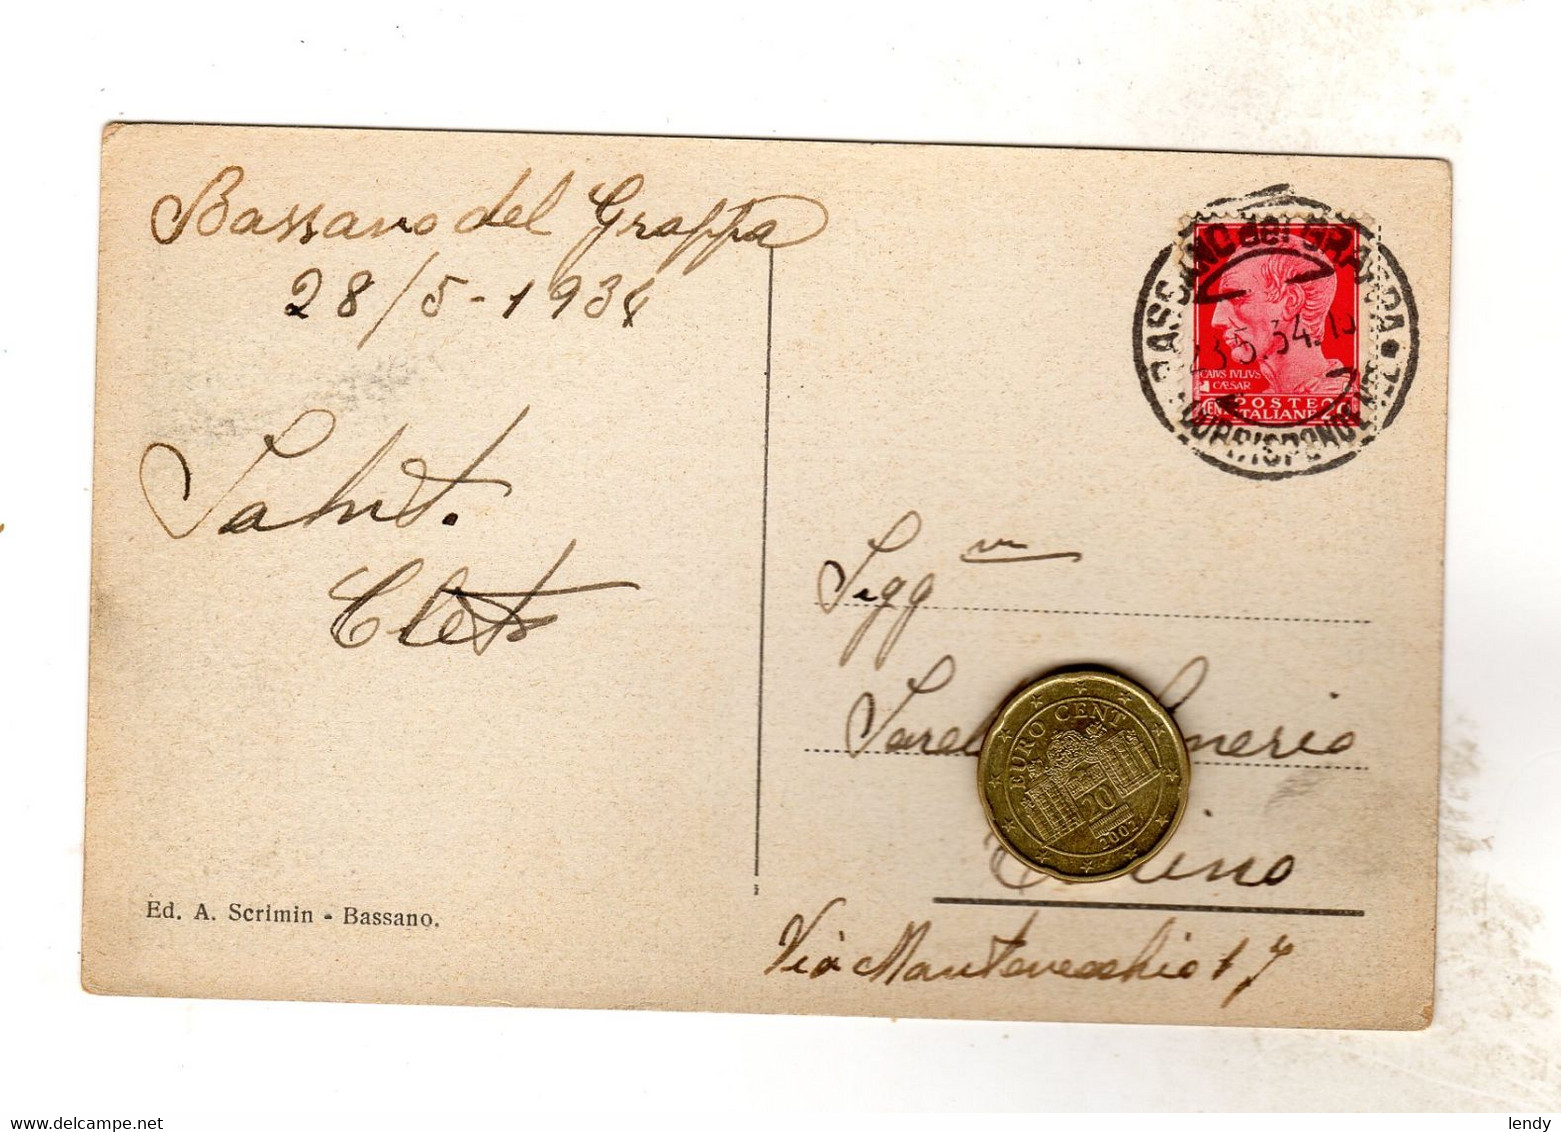 Bassano del Grappa
28/5-1934
Salut.
Cleto
Ed. A. Scrimin - Bassano.
BASSANO del GRAPPA
CORRISPONDENZE
5.34.
CAIVS IVLIVS
CÆSAR
POSTE
CENT ITALIANE 20
Sigg
Torino
Via Montevecchio 17
EURO CENT
20
2002
lendy